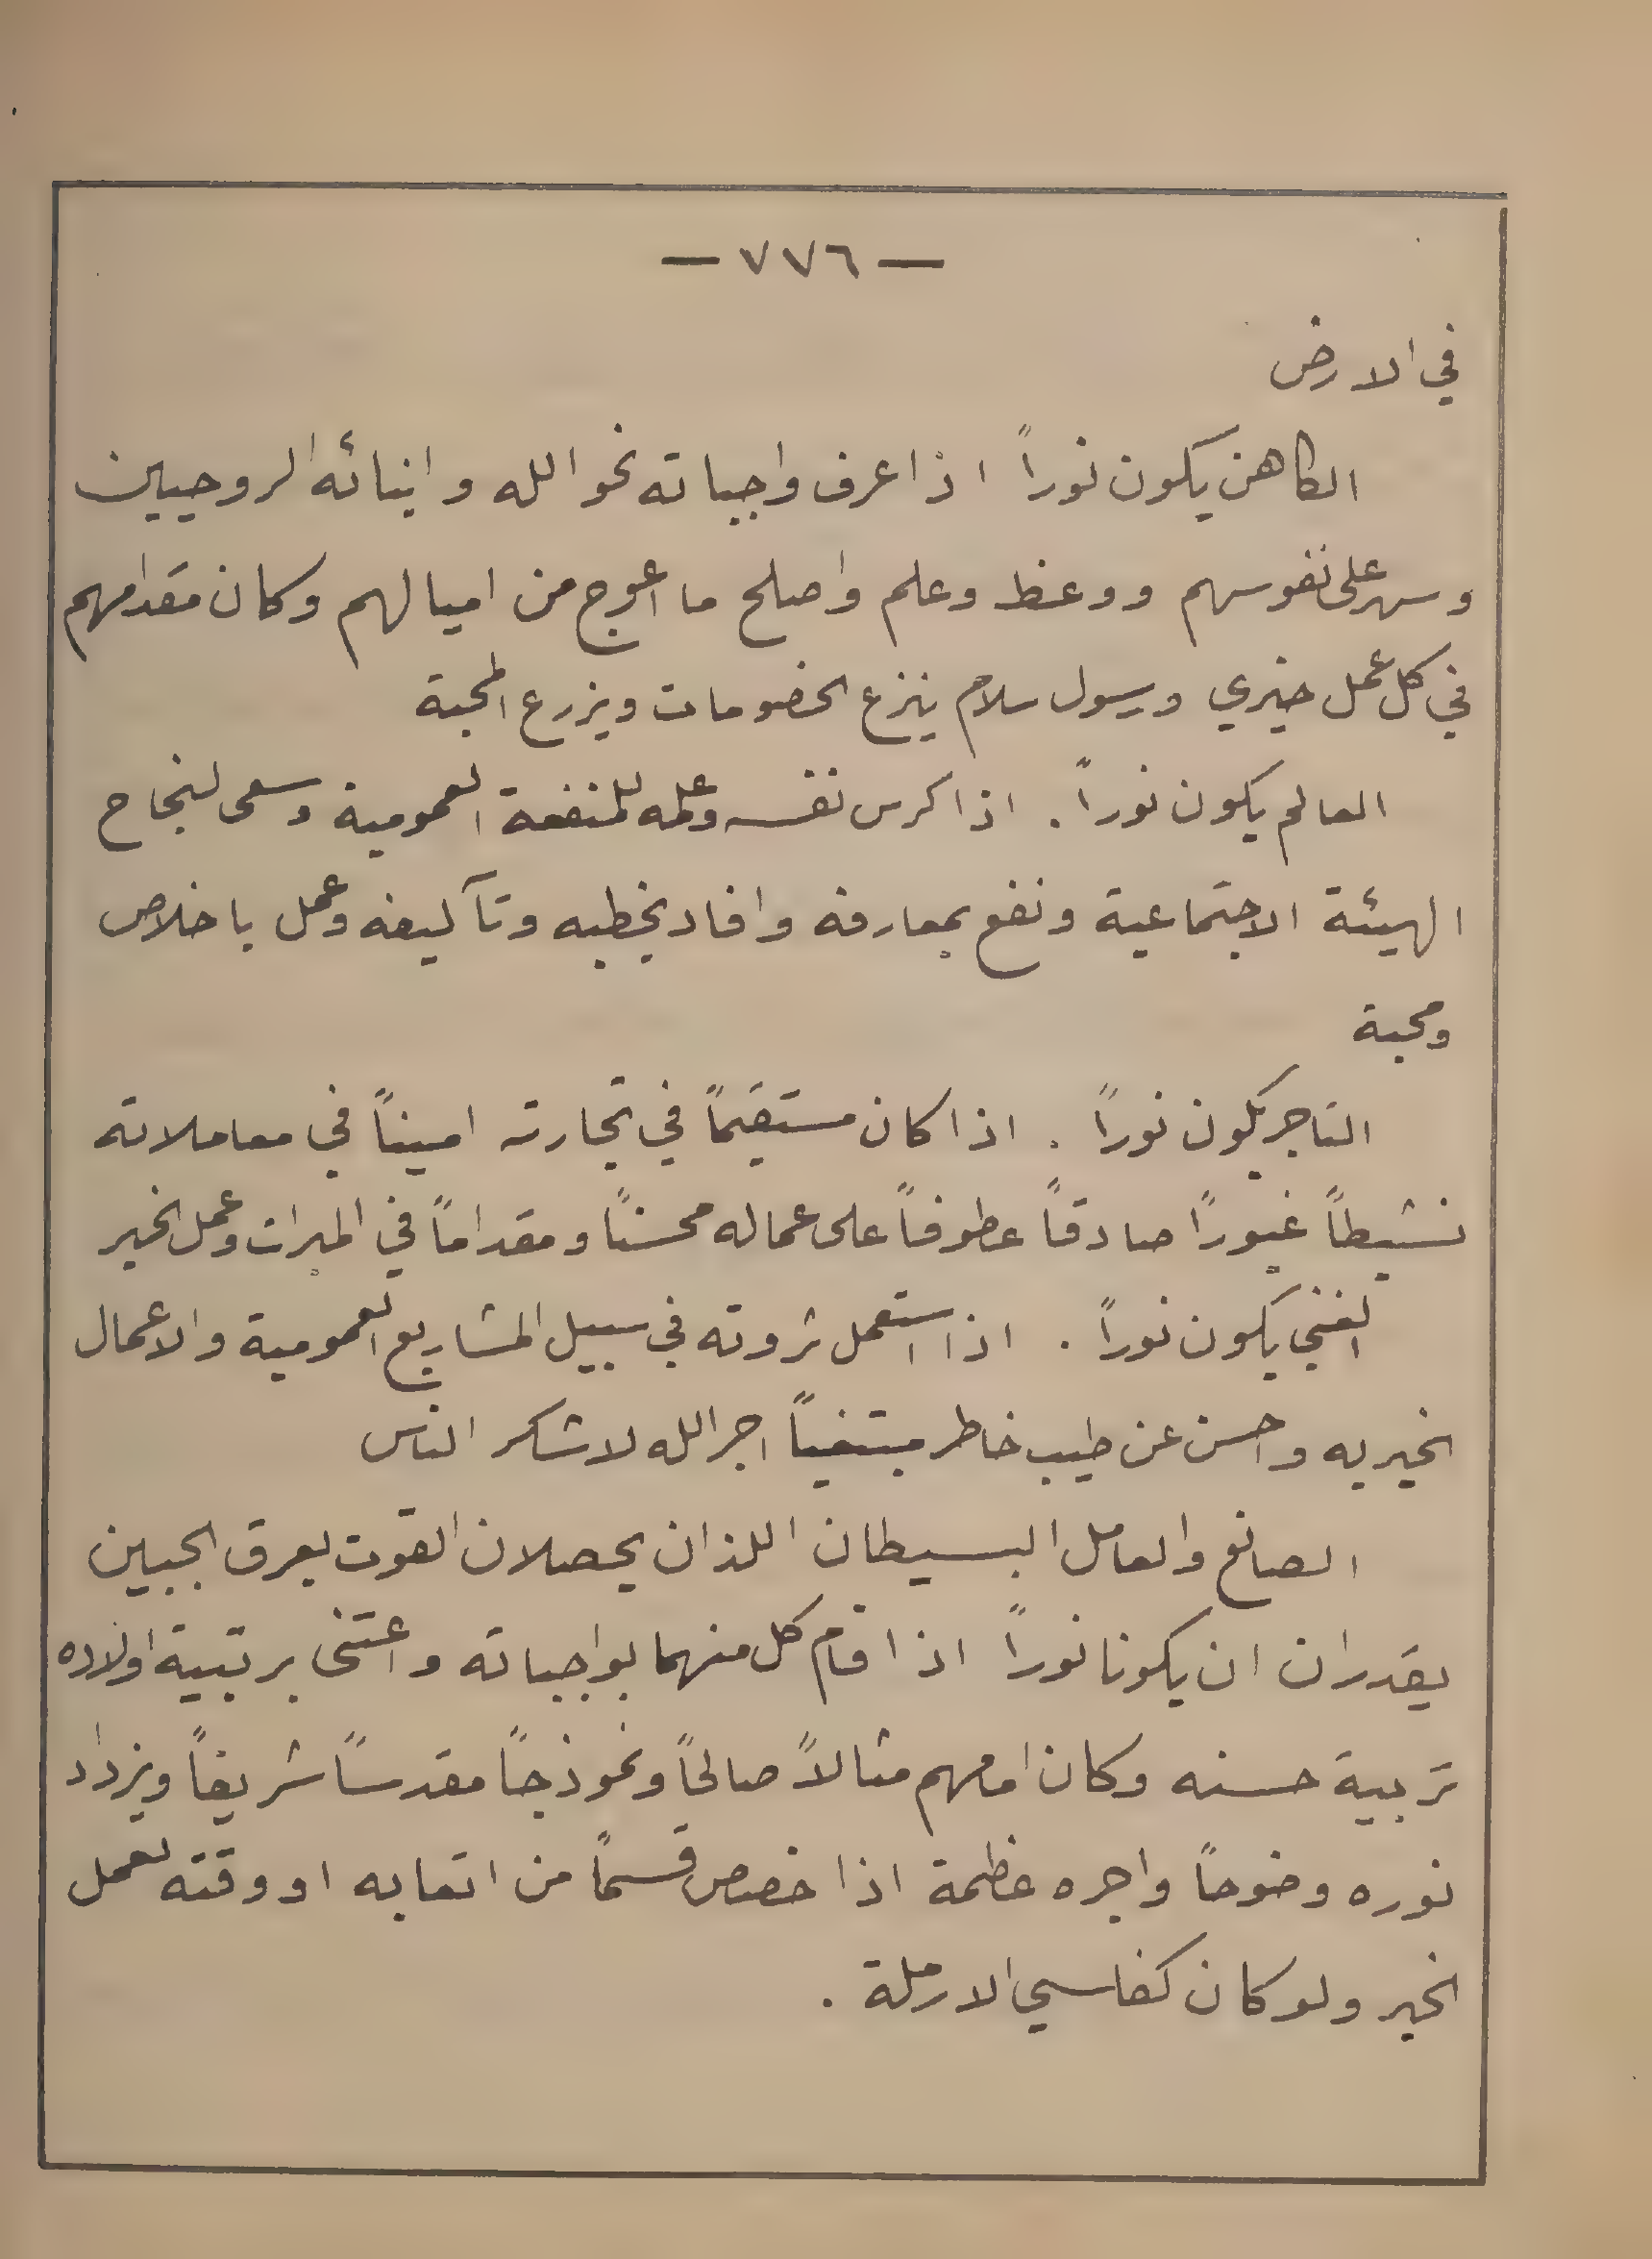 — ٧٧٦ —
في الارض
الكاهن يكون نوراً اذا عرف واجباته نحو الله وابنائه الروحيين
وسهر على نفوسهم ووعظ وعلم واصلح ما اعوج من اميالهم وكان مقدامهم
في كل عمل خيري ورسول سلام ينزع الخصومات ويزرع المحبة
العالم يكون نوراً . اذا كرس نفسه وعلمه للمنفعة العمومية وسعى لنجاح
الهيئة الاجتماعية ونفع بمعارفه وافاد بخطبه وتآليفه وعمل باخلاص
ومحبة
التاجر يكون نوراً . اذا كان مستقيماً في تجارته اميناً في معاملاته
نشيطاً غيوراً صادقاً عطوفاً على عماله محسناً ومقداماً في المبرات وعمل الخير
الغني يكون نوراً . اذا استعمل ثروته في سبيل المشاريع العمومية والاعمال
الخيريه واحسن عن طيب خاطر مبتغياً اجر الله لا شكر الناس
الصانع والعامل البسيطان اللذان يحصلان القوت بعرق الجبين
يقدران ان يكونا نوراً اذا قام كل منهما بواجباته واعتنى بتربية اولاده
تربية حسنه وكان امامهم مثالاً صالحاً ونموذجاً مقدساً شريفاً ويزداد
نوره وضوحاً واجره عظمة اذا خصص قسماً من اتعابه او وقته لعمل
الخير ولو كان كفلسي الارملة .